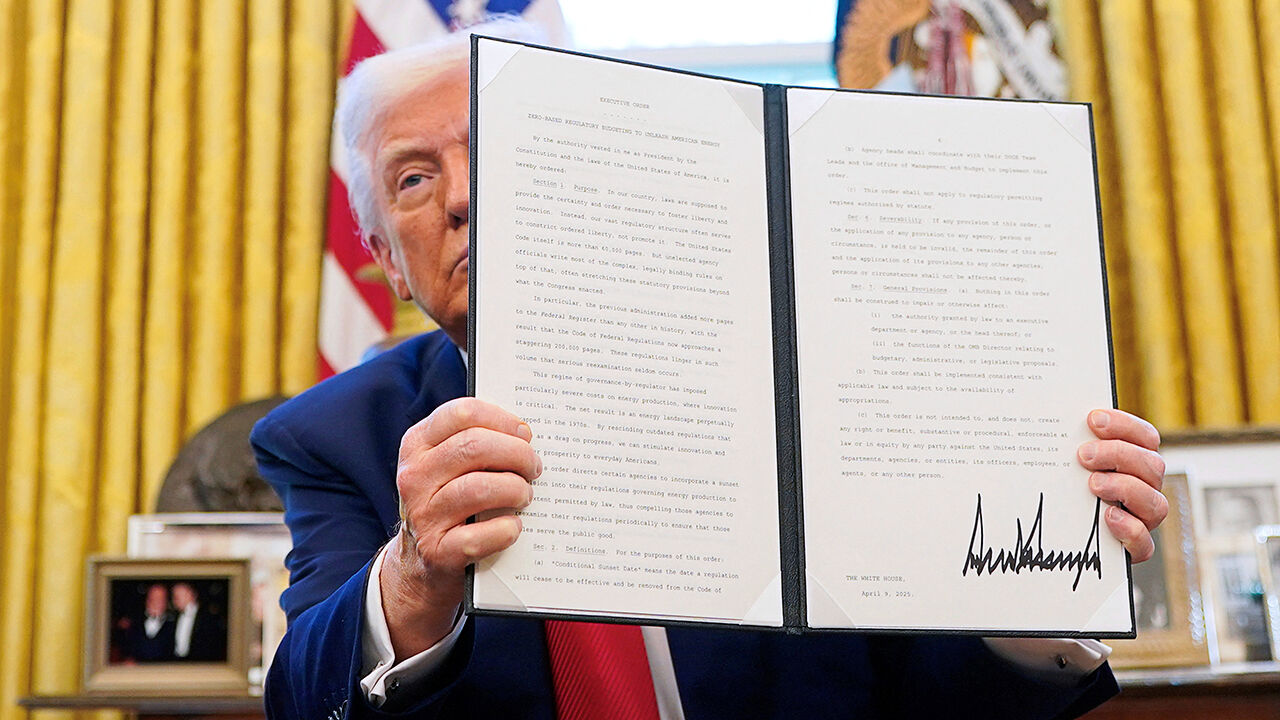 EXECUTIVE ORDER
ZERO-BASED REGULATORY BUDGETING TO UNLEASH AMERICAN ENERGY
By the authority vested in me as President by the
Constitution and the laws of the United States of America, it is
hereby ordered:
Section 1. Purpose. In our country, laws are supposed to
provide the certainty and order necessary to foster liberty and
innovation. Instead, our vast regulatory structure often serves
to constrict ordered liberty, not promote it. The United States
Code itself is more than 60,000 pages, but unelected agency
officials write most of the complex, legally binding rules on
top of that, often stretching these statutory provisions beyond
what the Congress enacted.
In particular, the previous administration added more pages
to the Federal Register than any other in history, with the
result that the Code of Federal Regulations now approaches a
staggering 200,000 pages. These regulations linger in such
volume that serious reexamination seldom occurs.
This regime of governance-by-regulator has imposed
particularly severe costs on energy production, where innovation
is critical. The net result is an energy landscape perpetually
pped in the 1970s. By rescinding outdated regulations that
as a drag on progress, we can stimulate innovation and
prosperity to everyday Americans.
order directs certain agencies to incorporate a sunset
ision into their regulations governing energy production to
extent permitted by law, thus compelling those agencies to
eexamine their regulations periodically to ensure that those
les serve the public good.
Sec. 2. Definitions. For the purposes of this order:
(a) "Conditional Sunset Date" means the date a regulation
will cease to be effective and be removed from the Code of
6
(b) Agency heads shall coordinate with their DOGE Team
Leads and the Office of Management and Budget to implement this
order.
(c) This order shall not apply to regulatory permitting
regimes authorized by statute.
Sec. 6. Severability. If any provision of this order, or
the application of any provision to any agency, person or
circumstance, is held to be invalid, the remainder of this order
and the application of its provisions to any other agencies,
persons or circumstances shall not be affected thereby.
Sec. 7. General Provisions. (a) Nothing in this order
shall be construed to impair or otherwise affect:
(i) the authority granted by law to an executive
department or agency, or the head thereof; or
(ii) the functions of the OMB Director relating to
budgetary, administrative, or legislative proposals.
(b) This order shall be implemented consistent with
applicable law and subject to the availability of
appropriations.
(c) This order is not intended to, and does not, create
any right or benefit, substantive or procedural, enforceable at
law or in equity by any party against the United States, its
departments, agencies, or entities, its officers, employees, or
agents, or any other person.
THE WHITE HOUSE,
April 9, 2025.